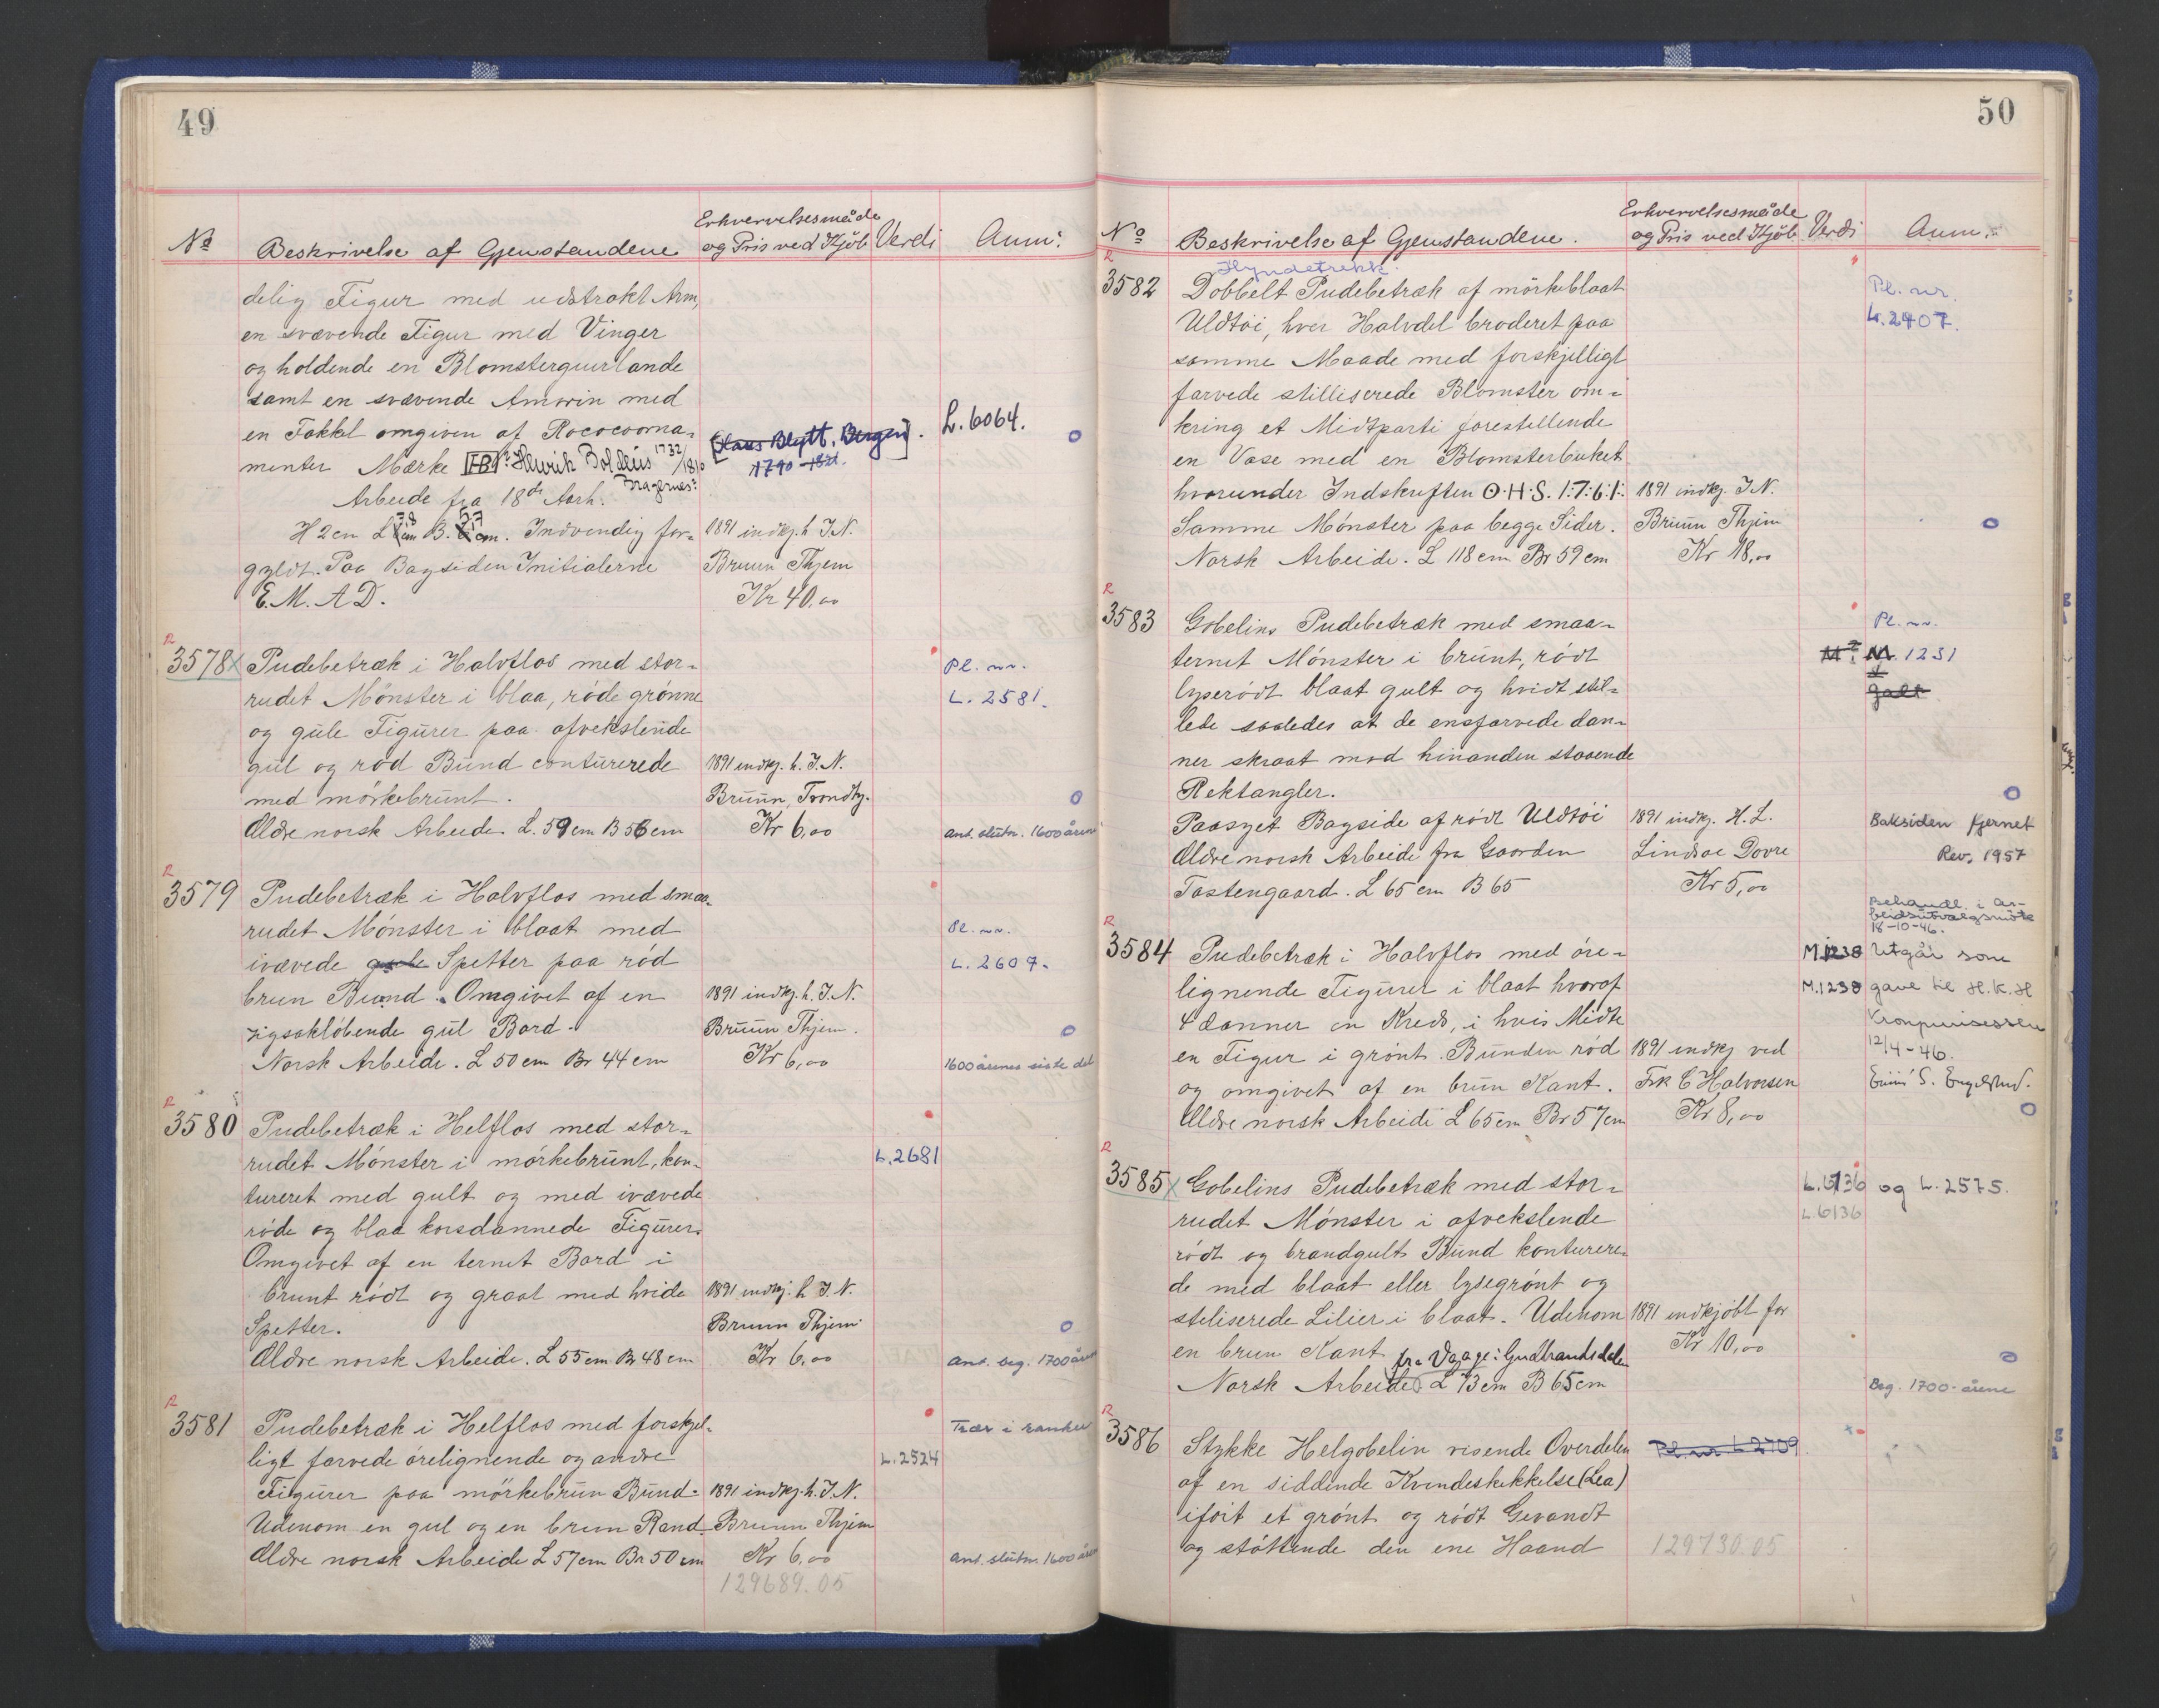 49
Nº Beskrivelse af Gjenstandene Erhvervelsesmåde og Pris ved Kjöb Verdi Anm:
delig Figur med udstrakt Arm,
en svævende Figur med Vinger
og holdende en Blomsterguirlande
samt en svævende Amorin med
en Fakkel omgiven af Rococoorna- [Claus Blytt, Bergen]. L. 6064. o
menter Mærke Henrik Boldeüs 1732/1810 1790-1821.
Arbeide fra 18de Aarh. Bragernes:
H 2 cm L 7,8 cm B. 5,7 cm. Indvendig for- 1891 indkj. h I.N.
gyldt. Paa Bagsiden Initialerne Bruun Thjem
E. M. A D. Kr 40,00
R
3578x Pudebetræk i Halvflos med stor- Pl. nr.
rudet Mönster i blaa, röde grönne L. 2581.
og gule Figurer paa afvekslende
gul og röd Bund conturerede 1891 indkj. h. I. N.
med mörkebrunt. Bruun, Trondhj. o
Ældre norsk Arbeide L. 59 cm B 56 cm Kr 6,00 ant. slutn. 1600 årene
R
3579 Pudebetræk i Halvflos med smaa-
rudet Mönster i blaat med Pl. nr.
ivævede gule Spetter paa röd L. 2607.
brun Bund. Omgivet af en 1891 indkj. h. I. N.
zigsaklöbende gul Bord. Bruun Thjem. o
Norsk Arbeide. L 50 cm Br 44 cm Kr 6,00 1600 årenes siste del
R
3580 Pudebetræk i Helflos med stor-
rudet Mönster i mörkebrunt, kon- L. 2681
tureret med gult og med ivævede
röde og blaa korsdannede Figurer.
Omgivet af en ternet Bord i
brunt rödt og graat med hvide 1891 indkj. h I. N.
Spetter. Bruun Thjem o
Ældre norsk Arbeide. L 55 cm Br 48 cm Kr 6,00 Ant. beg. 1700 årene
R
3581 Pudebetræk i Helflos med forskjel- Trær i ranker
ligt farvede örelignende og andre L. 2524
Figurer paa mörkebrun Bund- 1891 indkj. h. I. N.
Udenom en gul og en brun Rand. Bruun Thjem
Ældre norsk Arbeide L 57 cm Br 50 cm Kr 6,00 ant. slutn. 1600 årene
129689.05
50
Nº Beskrivelse af Gjenstandene. Erhvervelsesmåde og Pris ved Kjöb Verdi Anm.:
R Hyndetrekk.
3582 Dobbelt Pudebetræk af mörkeblaat Pl. nr.
Uldtöi, hver Halvdel broderet paa L. 2407.
samme Maade med forskjelligt
farvede stilliserede Blomster om-
kring et Midtparti forestellende
en Vase med en Blomsterbuket
hvorunder Indskriften O·H·S. 1:7:6:1: 1891 indkj. I N.
Samme Mönster paa begge Sider. Bruun Thjem o
Norsk Arbeide. L 118 cm Br 59 cm Kr 18,00
R
3583 Gobelins Pudebetræk med smaa- Pl. nr.
ternet Mönster i brunt, rödt M? M. 1231
lyserödt blaat gult og hvidt stil- galt
lede saaledes at de ensfarvede dan-
ner skraat mod hinanden staaende
Rektangler. o
Paasyet Bagside af rödt Uldtöi 1891 indkj. H. L. Baksiden fjernet
Ældre norsk Arbeide fra Gaarden Lindsoe Dovre Rev. 1957
Tostengaard. L 65 cm B 65 Kr 5,00
Behandl. i ar-
beidsutvalgsmöte
18-10-46.
R
3584 Pudebetræk i Halvflos med öre- M 1238 Utgår som
lignende Figurer i blaat hvoraf M. 1238 gave til H. K. H
4 danner en Kreds, i hvis Midte Kronprinsessen
en Figur i grönt. Bunden röd 1891 indkj ved 12/4-46.
og omgivet af en brun Kant. Frk C Halvorsen
Ældre norsk Arbeide L 65 cm Br 57 cm Kr 8,00 o
R
3585x Gobelins Pudebetræk med stor- L. 6136 og L. 2575.
rudet Mönster i afvekslende L. 6136
rödt og brandgult Bund konturere-
de med blaat eller lysegrönt og
steliserede Lilier i blaat. Udenom 1891 indkjöbt for
en brun Kant fra Vaage i Gudbrandsdalen Kr 10,00 o
Norsk Arbeide L 73 cm B 65 cm Beg. 1700-årene
R
3586 Stykke Helgobelin visende Overdelen Pl. nr L 2709.
af en siddende Kvindeskikkelse (Lea)
iföit et grönt og rödt Gevandt
og stöttende den ene Haand 129730.05